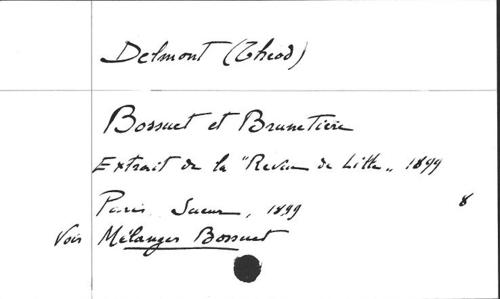 Delmont (Théod)
Bossuet et Brunetière
Extrait de la "Revue de Lille„ 1899
Paris Sueur, 1899 8
Voir Mélanges Bossuet